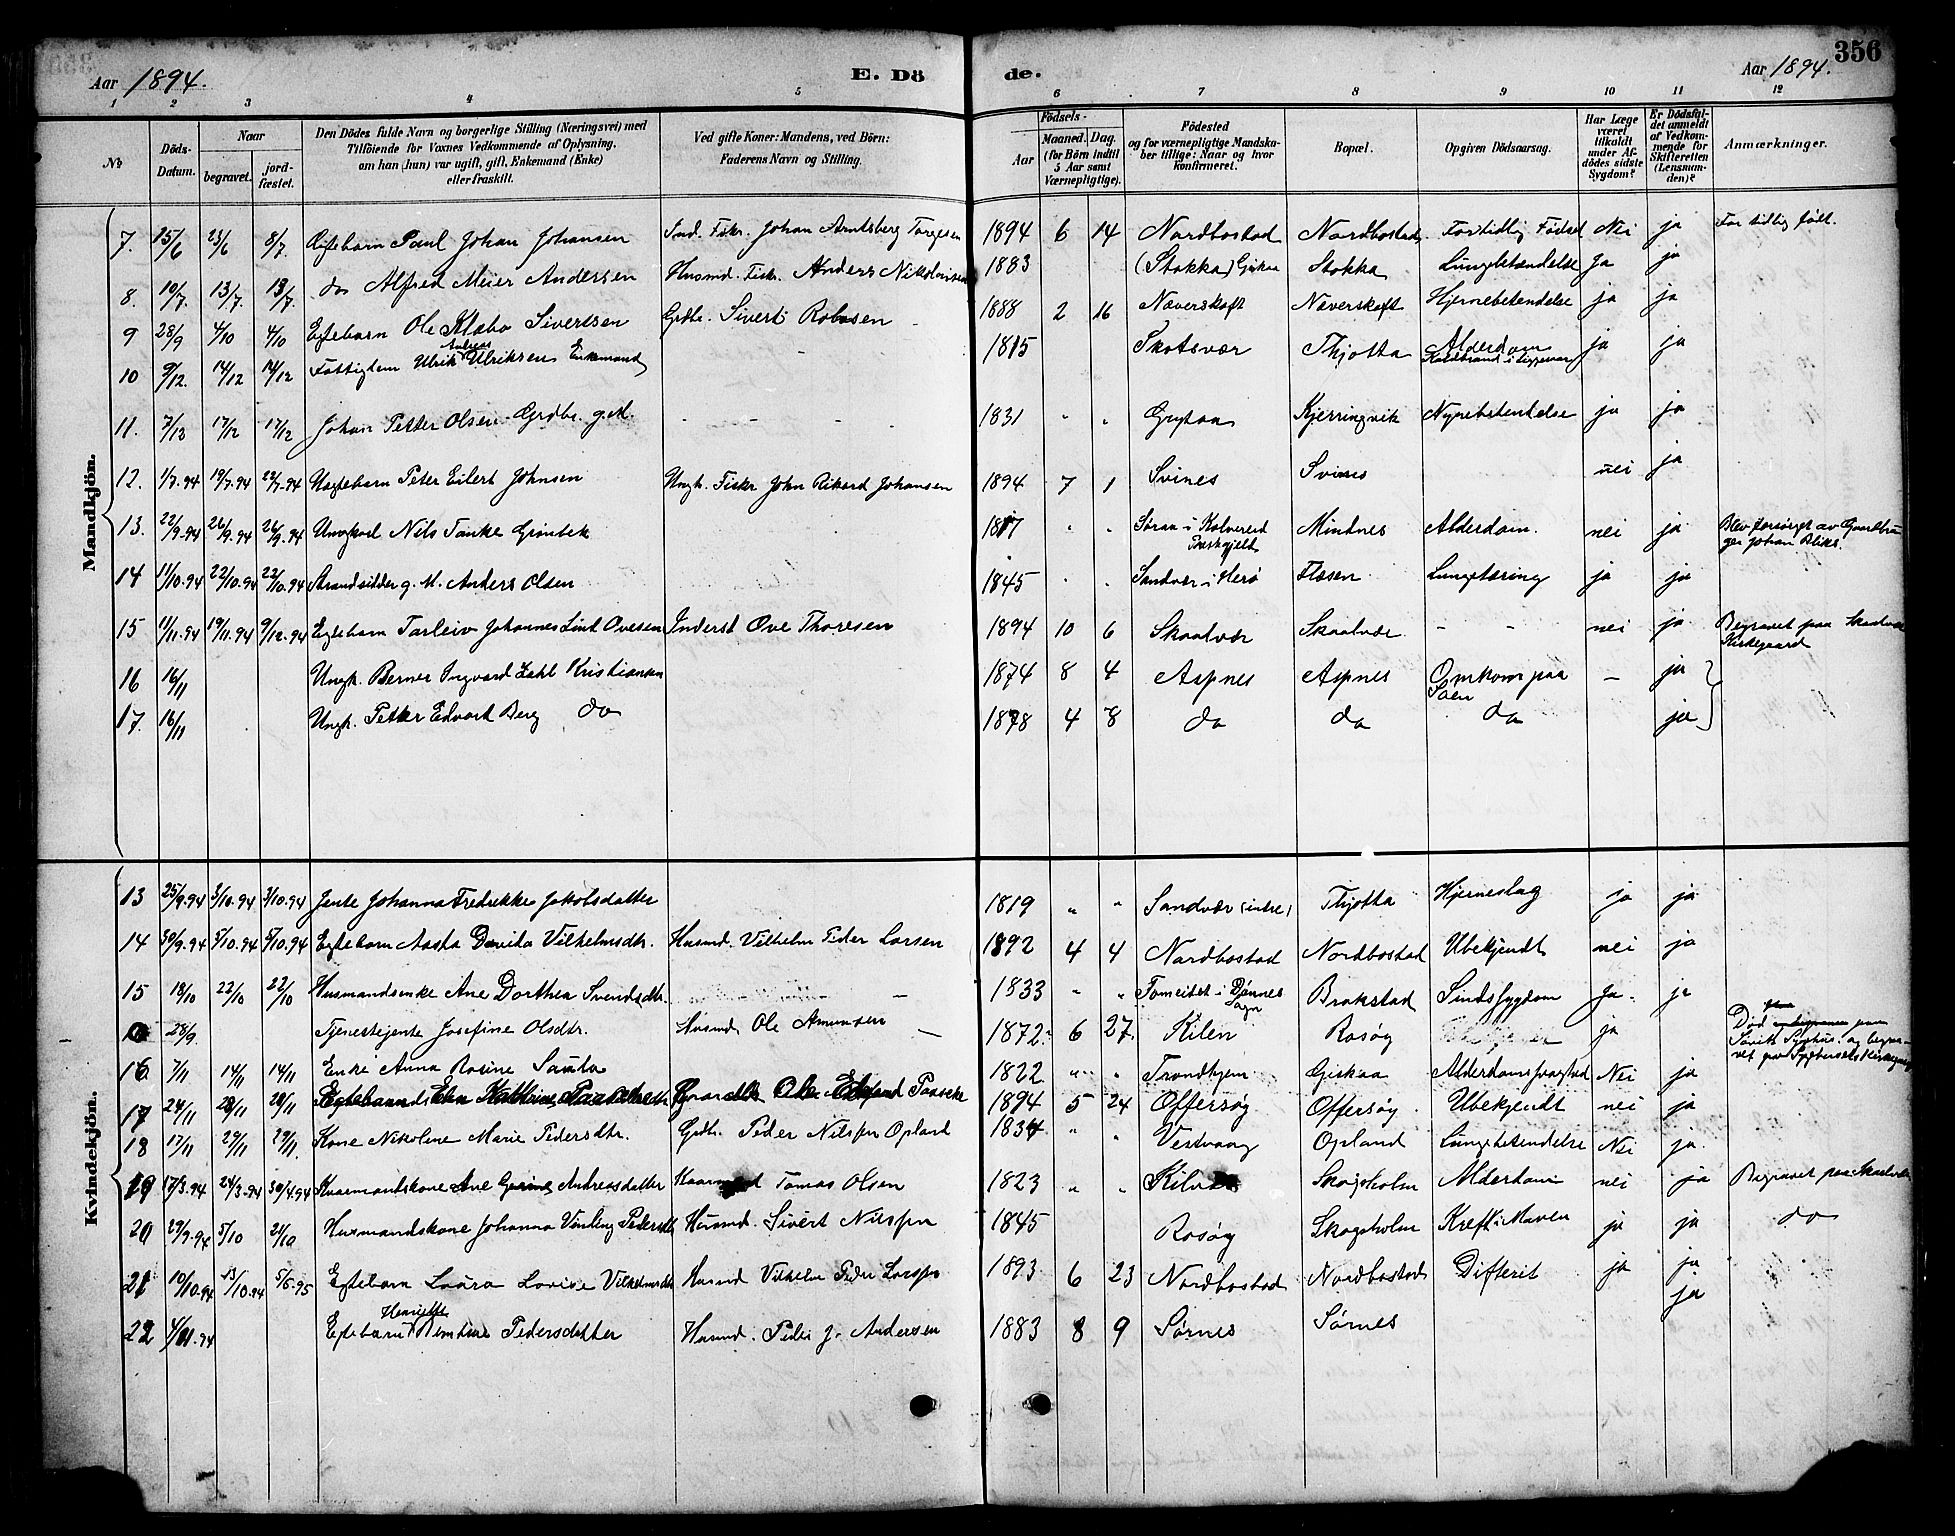 Aar 1894.
E. Dö
de.
Aar 1894.
356
1 2 3 4 5 6 7 8 9 10 11 12
No
Döds-Datum.
Naar
begravet.
jord-fæstet.
Den Dödes fulde Navn og borgerlige Stilling (Næringsvei) med
Tilföiende for Voxnes Vedkommende af Oplysning,
om han (hun) var ugift, gift, Enkemand (Enke)
eller fraskilt.
Ved gifte Koner: Mandens, ved Börn:
Faderens Navn og Stilling.
Födsels-
Aar
Maaned. Dag.
(for Börn indtil
5 Aar samt
Værnepligtige).
Födested
og for værnepligtige Mandska-
ber tillige: Naar og hvor
konfirmeret.
Bopæl.
Opgiven Dödsaarsag.
Har Læge
været
tilkaldt
under Af-
dödes sidste
Sygdom?
Er Dödsfal-
det anmeldt
af Vedkom-
mende for
Skifteretten
(Lensman-
den)?
Anmærkninger.
Mandkjön.
7. 15/6 23/6 8/7. Ægtebarn Paul Johan Johansen Ind. Fiskr. Johan Arntsberg Torgesen 1894 6 14 Nordbostad Nordbostad Fortidlig Födsel Nei ja For tidlig født.
8. 10/7. 13/7. 13/7. do Alfred Meier Andersen Husmd. Fiskr. Anders Nikolaisen 1883 (Stokka) Giskaa Stokka Lungebetændelse Ja ja
9 28/9 4/10 4/10 Egtebarn Ole Klæbo Sivertsen Grdbr. Sivert Robsen 1888 2 16 Næverskaft Næverskaft Hjernebetendelse ja ja
10 9/12. 14/12 14/12 Fattiglem Ulrik Andreas Ulriksen Enkemand - 1815 Skotsvær Thjotta Alderdom Koldbrand i ja ja
11. 7/12 17/12 17/12 Johan Petter Olsen Grdbr. g.M. - - - 1831 " " Grytaa Kjerringvik Nyrebetendelse ja ja
12. 1/7.94 19/7.94 22/7.94 Uægtebarn Peter Eilert Johnsen Ungk. Fiskr John Rikard Johansen 1894 7 1 Svines Svines nei ja
13. 22/9.94 26/9.94 26/9.94 Ungkarl Nils Tanke Grönbek 1817 " " Söraa i Kolvereid Præstegjeld Mindnes Alderdom. nei ja Blev forsörget av Gaardbru-
ger Johan Bliks.
14 11/10.94 22/10.94 22/10.94 Strandsidder g. M. Anders Olsen 1845 " " Sandvær i Herö Flæsen Lungetæring ja ja
15 11/11.94 19/11.94 9/12.94 Egtebarn Torleiv Johannes Lind Ovesen Inderst Ove Thoresen 1894 10 6 Skaalvær Skaalvær - - nei ja Begravet paa Skaalvær
Kirkegaard
16 16/11 Ungk. Berner Ingvard Zahl Kristiansen 1874 8 4 Aspnes Aspnes Omkom paa Söen - ja
17. 16/11 Ungk. Petter Edvart Berg do 1878 4 8 do do do ja
Kvindekjön.
13 25/9.94 3/10.94 3/10.94 Jente Johanna Fredrikke Jakobsdatter 1819 " " Sandvær (indre) Thjotta Hjerneslag ja ja
14 30/9.94 5/10.94 5/10.94 Egtebarn Aasta Davida Vilhelmsdtr. Husmd. Vilhelm Peder Larsen 1892 4 4 Nordbostad Nordbostad Ubekjendt nei ja
15 18/10 22/10 22/10 Husmandsenke Ane Dorthea Svendsdtr. - - - 1833 " " Tomeidet i Dönnes Sogn Brækstad Sindssygdom Ja. ja
28/9. Tjenestejente Josefine Olsdtr. Husmd. Ole Amundsen - 1872. 6 27. Kilen Rosöy ja Död paa
Sörvik Sygehus. og begra-
vet paa Sygehusets Kirkegaard
16 7/11 14/11 14/11 Enke Anna Rosine Sauta 1822 " " Trondhjem Giskaa Alderdomssvaghed Nei ja
17 24/11 28/11 28/11 Egtebarn 1894 5 24 Offersöy Offersöy. Ubekjendt nei ja
18 17/11 29/11 29/11. Kone Nikoline Marie Pedersdtr. Grdbr. Peder Nilssen Opland 1834 " " Vestvaag Opland Lungebetendelse Nei ja.
19 17/3.94 24/3.94 30/4.94 Husmandskone Ane Andreasdatter Husmand Tomas Olsen 1823 " " Kilvær Skogsholm Alderdom nei ja Begravet paa Skaalvær
20 29/9.94 5/10 21/10 Husmandskone Johanna Pedersdtr Husmd. Sivert Nilssen 1845 Rosöy Skogsholm Kreft i Maven ja ja do
21 10/10.94 13/10.94 5/5.95 Egtebarn Laura Lovise Vilhelmsdtr Husmd Vilhelm Peder Larssen 1893 6 23 Nordbostad Nordbostad Difterit ja ja
22 4/11.94 Egtebarn Henriette Pedersdatter Husmd. Peder J. Andersen 1883 8 9 Sörnes Sörnes ja